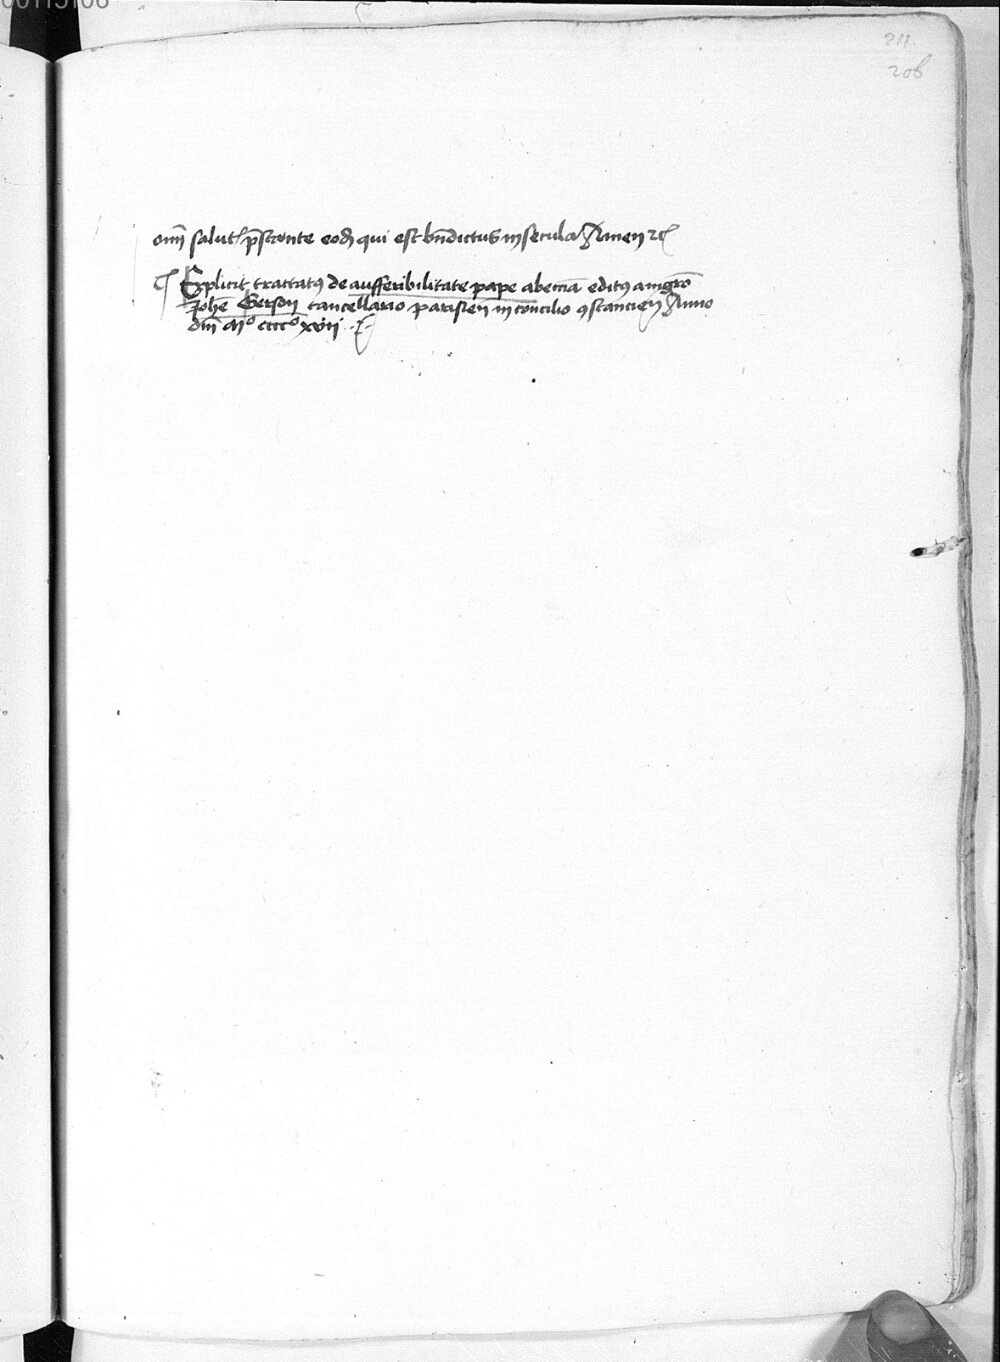 00115106
211.
206
om̄i salut̛ p̄stante eodē qui est bn̄dictus in secula Amen ⁊c̃
¶ Explicit tractatꝰ de aufferibilitate pape ab ecc̄ia editꝰ a mgr̄o
Joh̄e Gerson cancellario parisien̄ in concilio ꝯstancien̄ Anno
dn̄i Mº ccccº xvii